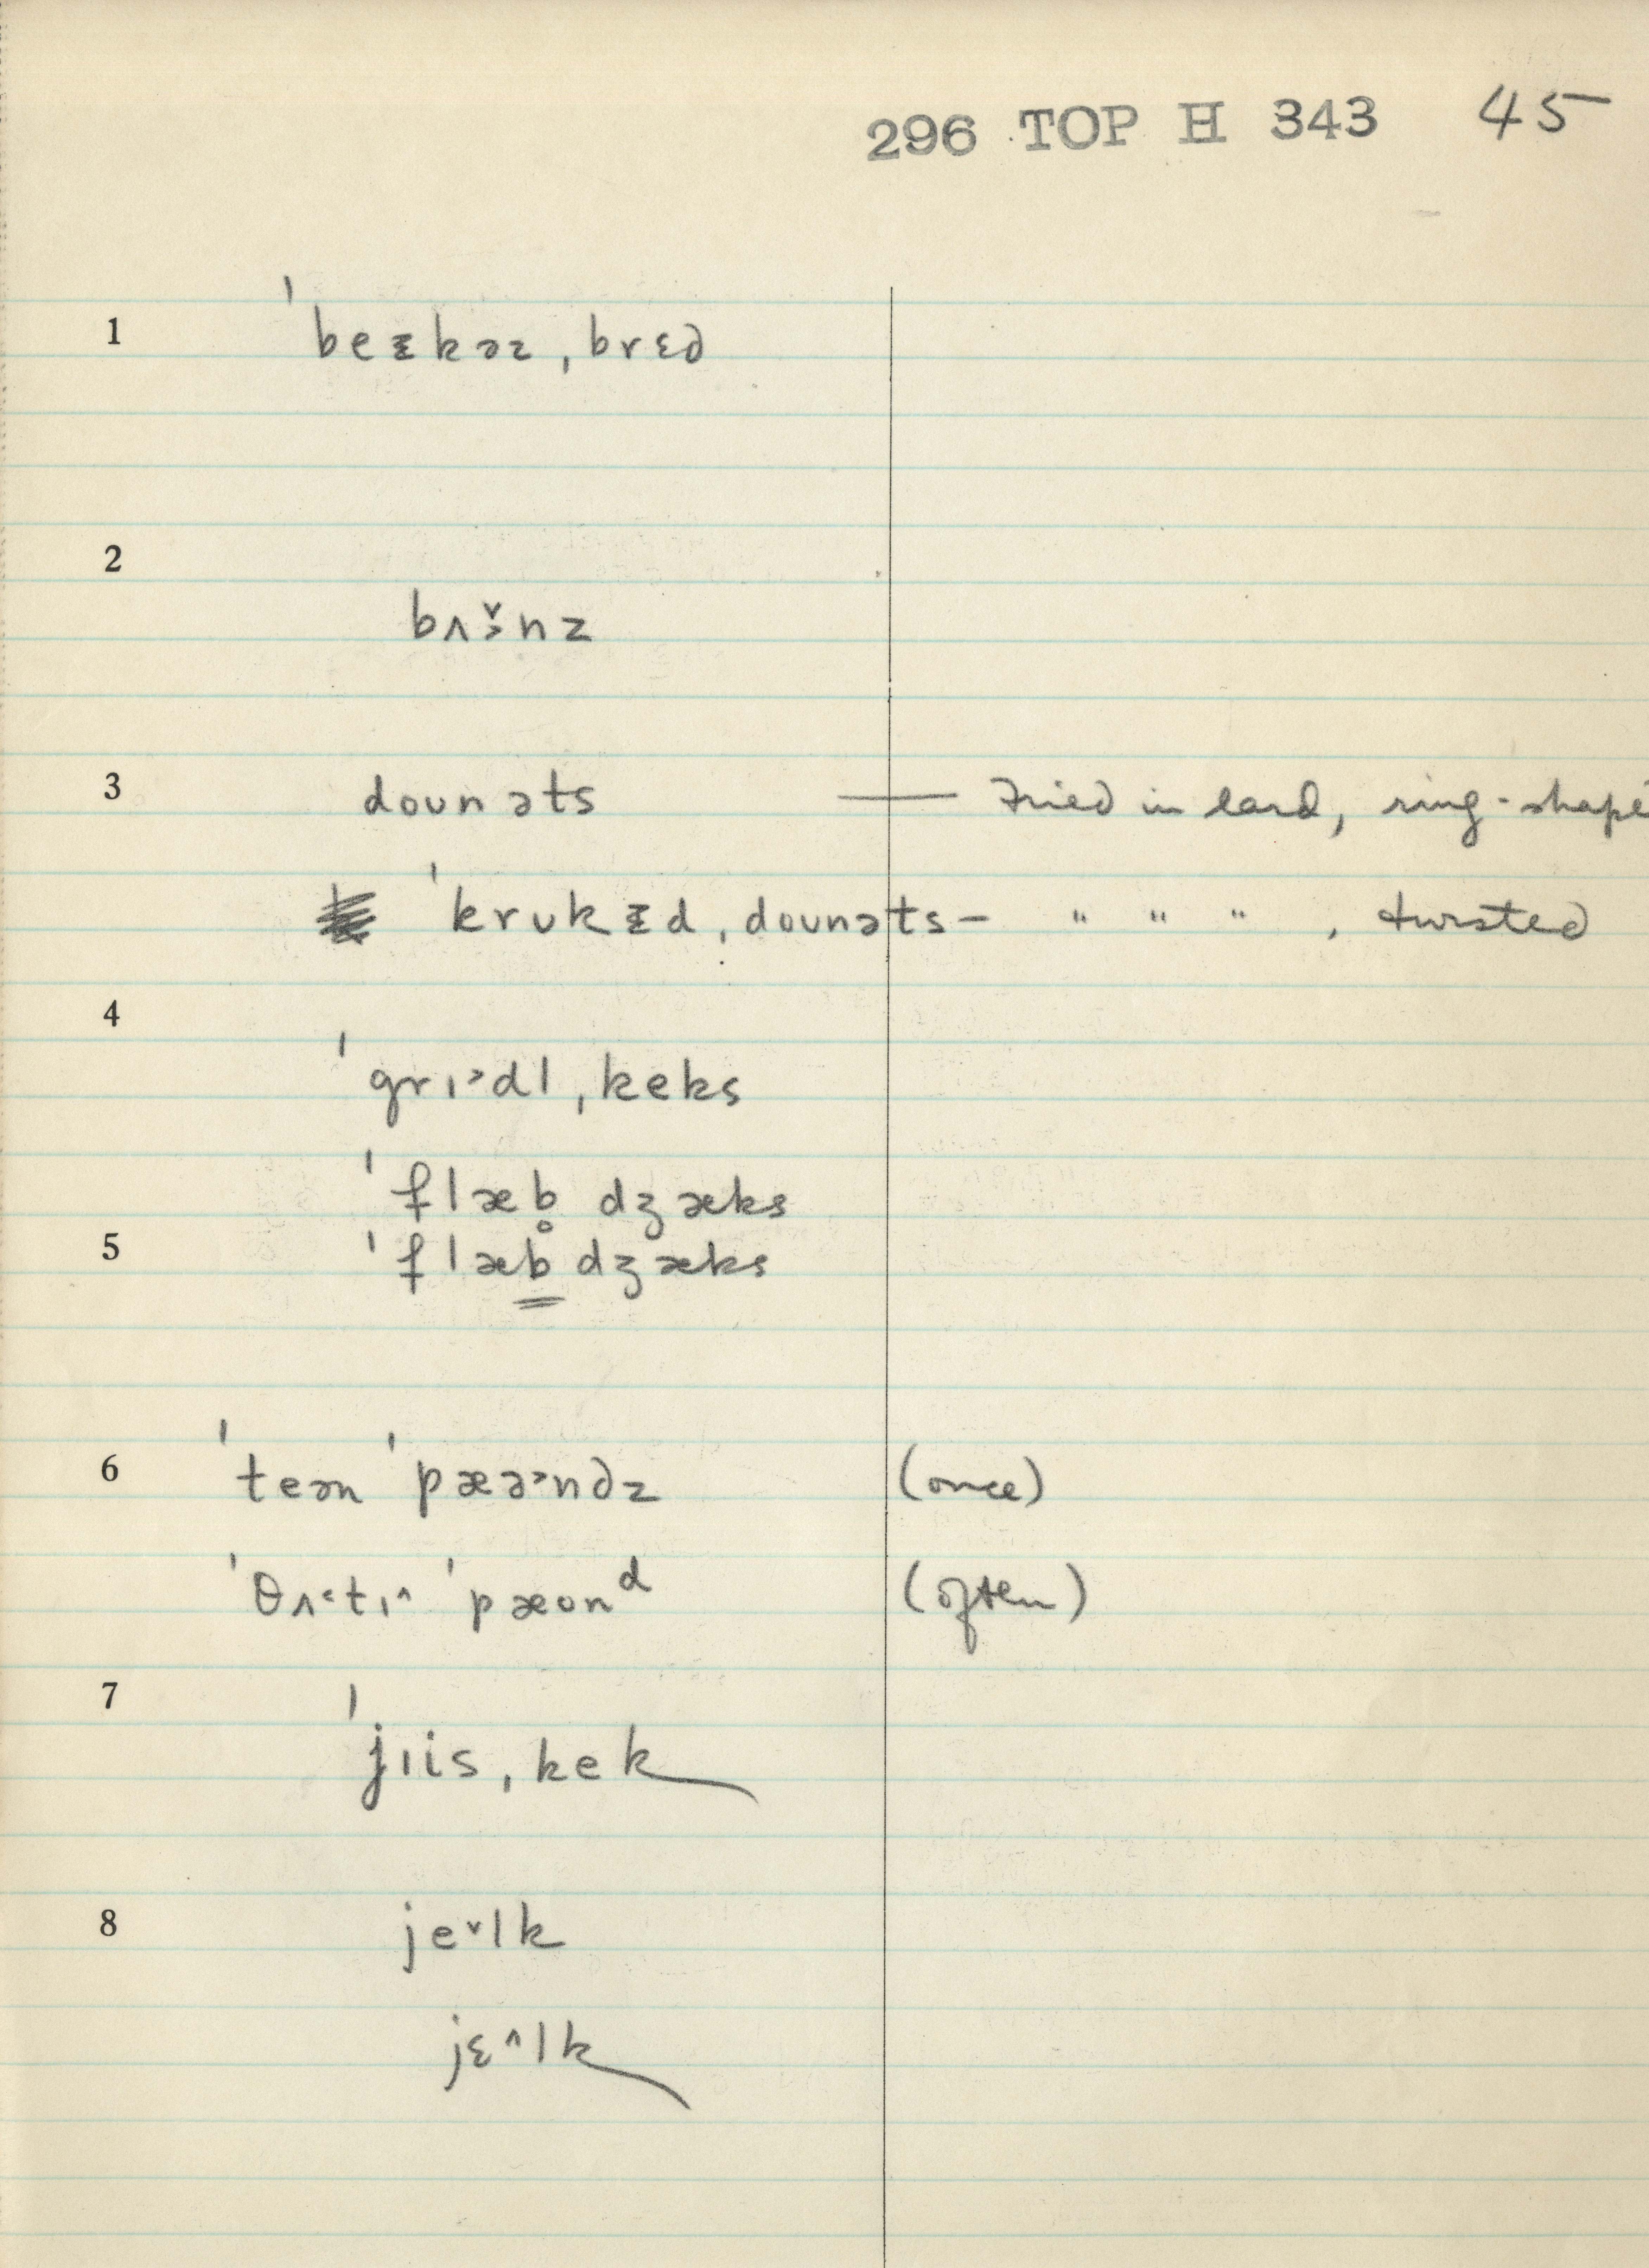 296 TOP H 343 45
1 ˈbeᵻkəz ˌbrɛd
2 bʌ˃̌nz
3 dounəts — Fried in lard, ring-shape
ˈkrukᵻd ˌdounəts – " " " , twisted
4 ˈgrɪ˃dl ˌkeks
ˈflæb̥ dʒæks
5 ˈflæb̳ dʒæks
6 ˈteən ˈpæə˃ndz (once)
ˈθʌ˂tɪ˄ ˈpæʊnᵈ (often)
7 ˈjɪis ˌkek
8 je˅lk
jɛ˄lk